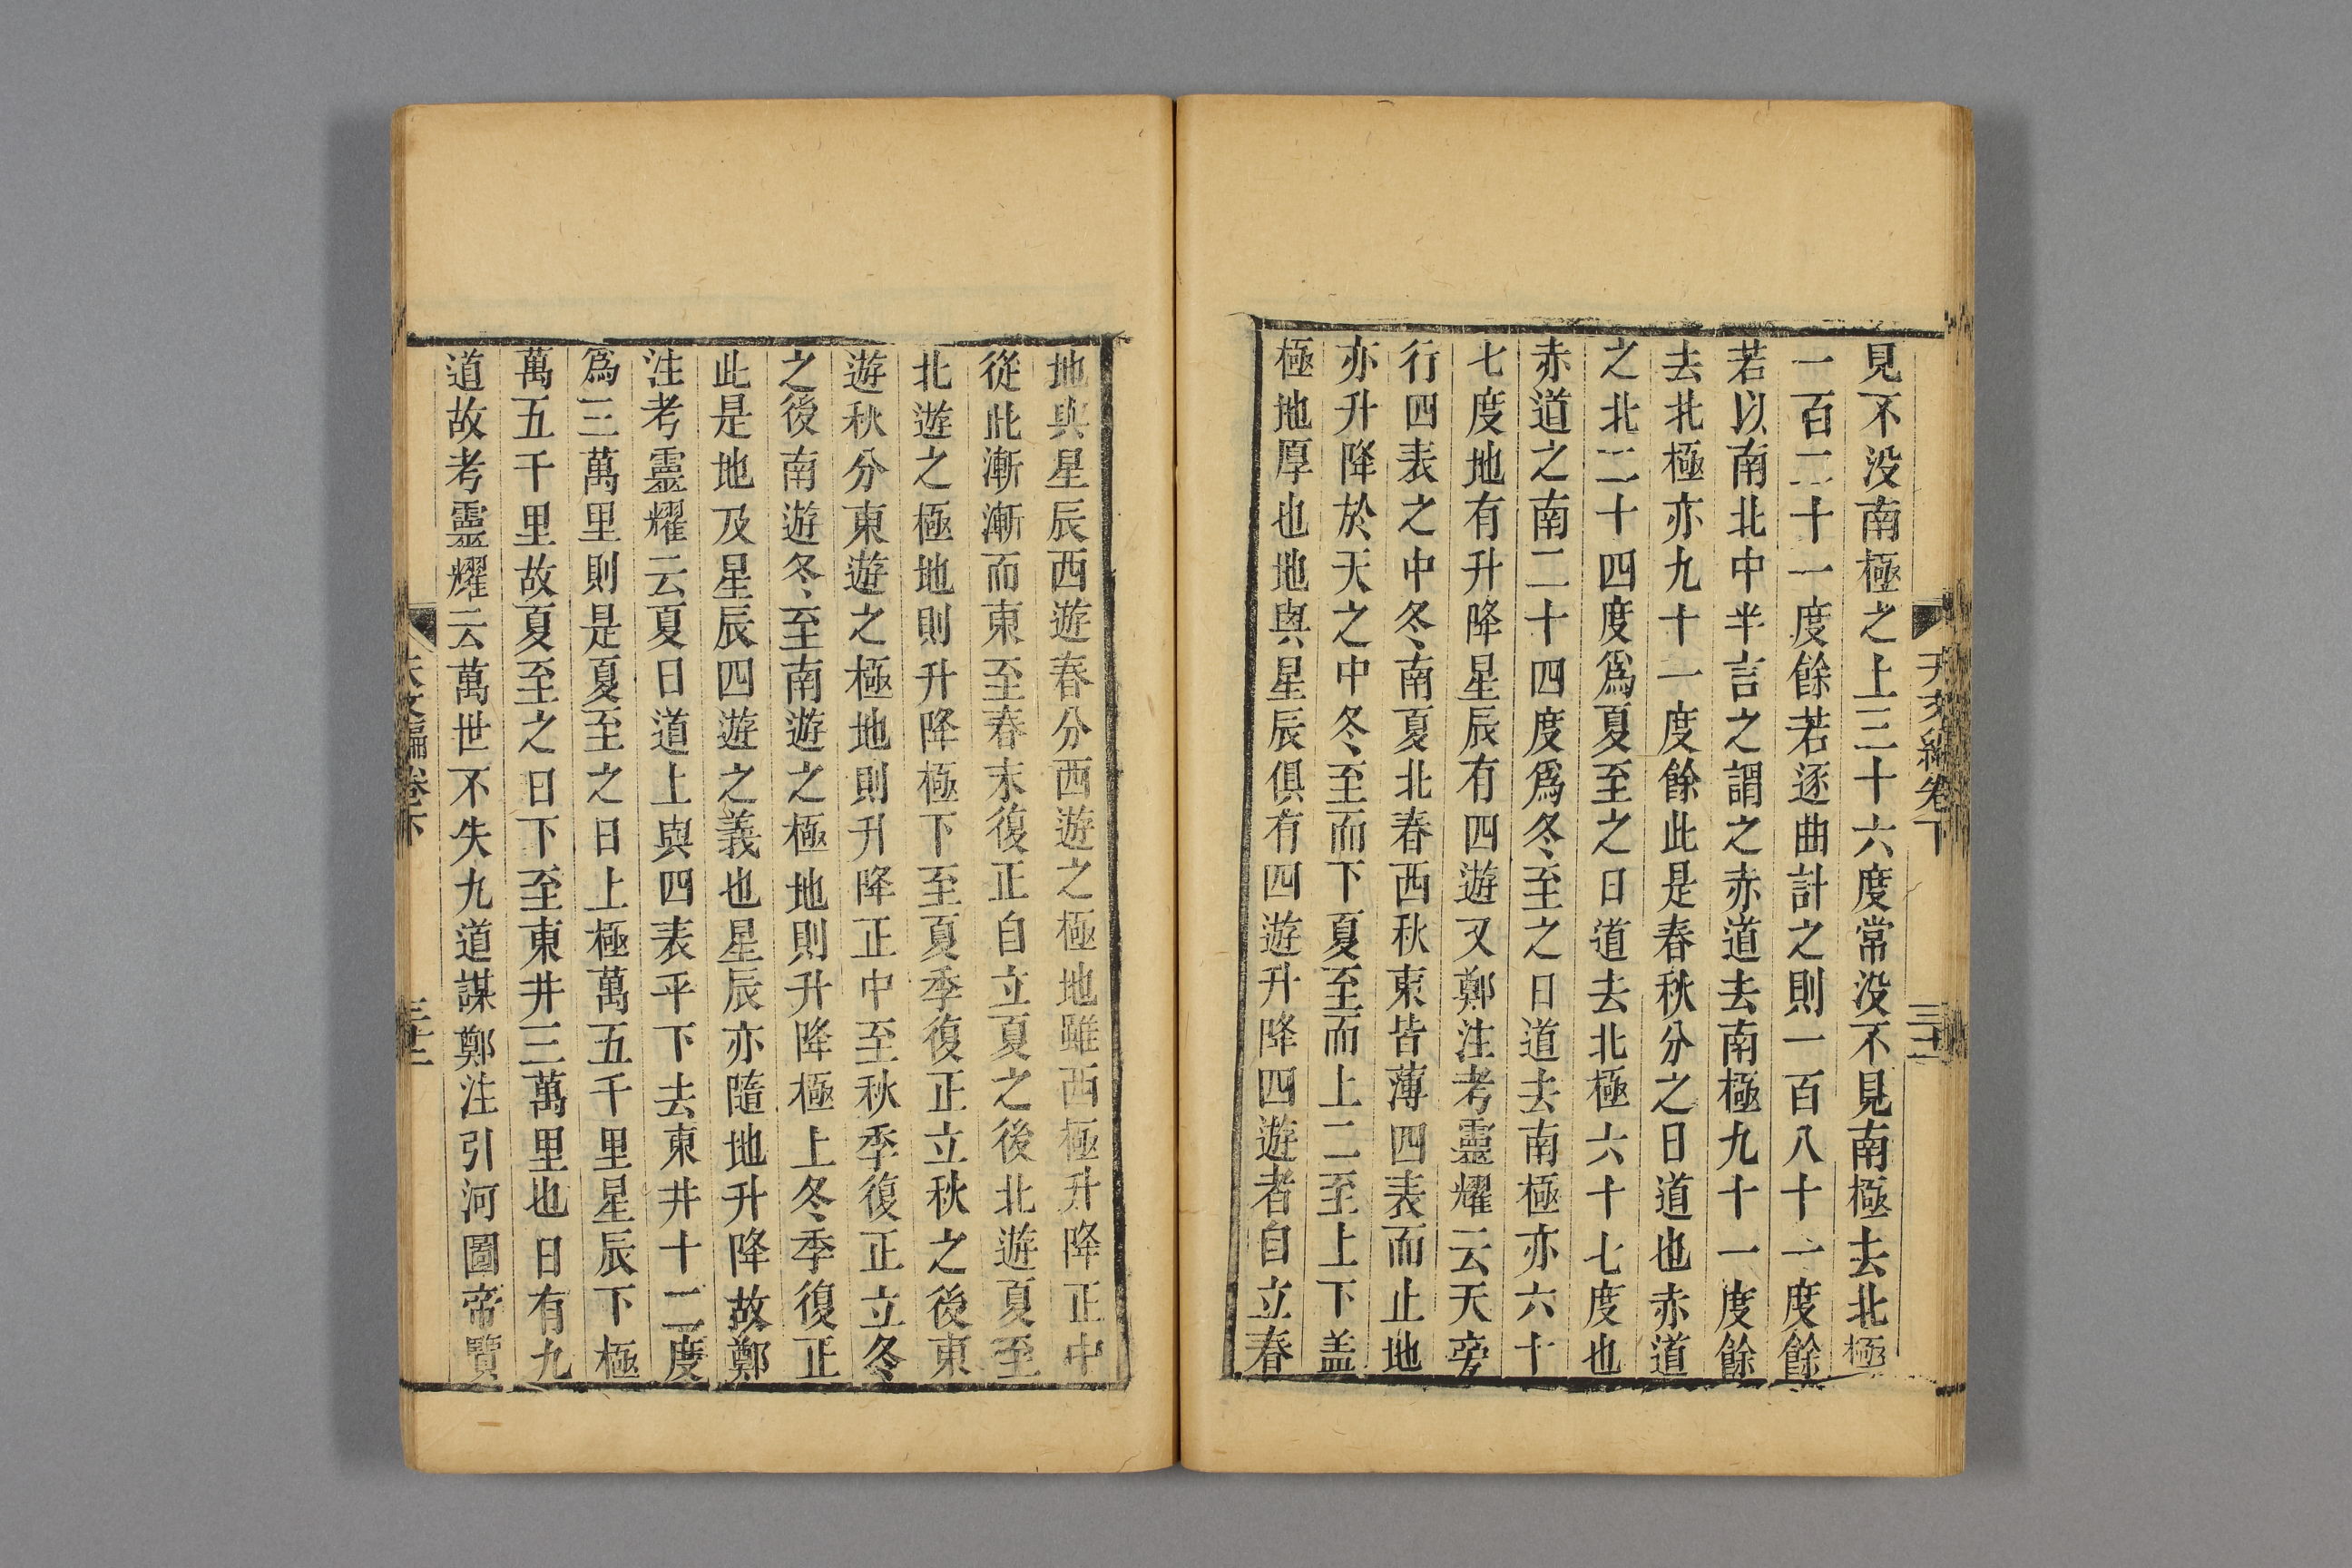 見不没南極之上三十六度常没不見南極去北極
一百二十一度餘若逐曲計之則一百八十一度餘
若以南北中半言之謂之赤道去南極九十一度餘
去北極亦九十一度餘此是春秋分之日道也赤道
之北二十四度爲夏至之日道去北極六十七度也
赤道之南二十四度爲冬至之日道去南極亦六十
七度地有升降星辰有四遊又鄭注考靈耀云天旁
行四表之中冬南夏北春西秋東皆薄四表而止地
亦升降於天之中冬至而下夏至而上二至上下盖
極地厚也地與星辰俱有四遊升降四遊者自立春
地與星辰西遊春分西遊之極地雖西極升降正中
從此漸漸而東至春末復正自立夏之後北遊夏至
北遊之極地則升降極下至夏季復正立秋之後東
遊秋分東遊之極地則升降正中至秋季復正立冬
之後南遊冬至南遊之極地則升降極上冬季復正
此是地及星辰四遊之義也星辰亦隨地升降故鄭
注考靈耀云夏日道上與四表平下去東井十二度
爲三萬里則是夏至之日上極萬五千里星辰下極
萬五千里故夏至之日下至東井三萬里也日有九
道故考靈耀云萬世不失九道謀鄭注引河圖帝覽
天文編卷下